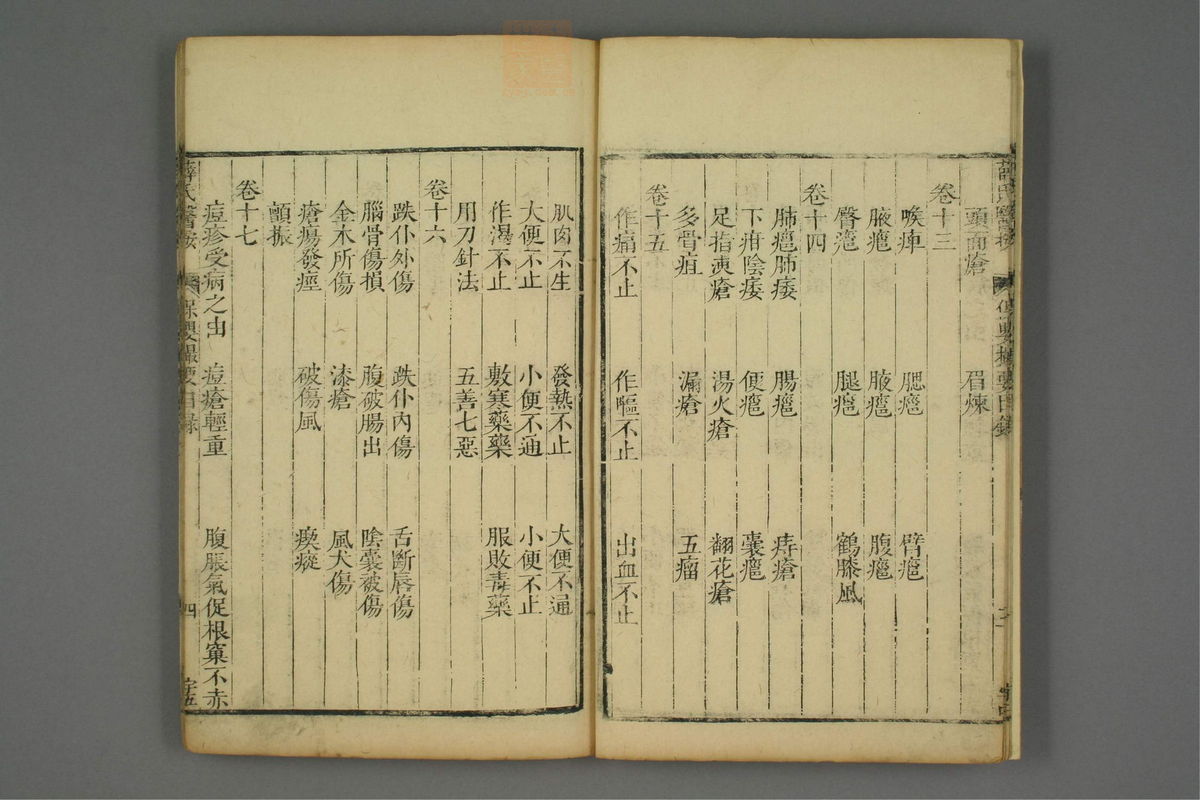 頭面瘡　眉煉
卷十三
喉痺　腮癰　臂癰
腋癰　腋癰　腹癰
臀癰　腿癰　鶴膝風
卷十四
肺癰肺痿　腸癰　痔瘡
下疳陰痿　便癰　囊癰
足指凍瘡　湯火瘡　翻花瘡
多骨疽　漏瘡　五瘤
卷十五
作痛不止　作嘔不止　出血不止
肌肉不生　發熱不止　大便不通
大便不止　小便不通　小便不止
作渴不止　敷寒藥藥　服敗毒藥
用刀針法　五善七惡
卷十六
跌仆外傷　跌仆內傷　舌斷唇傷
腦骨傷損　腹破腸出　陰囊被傷
金木所傷　漆瘡　風犬傷
瘡瘍發痙　破傷風　瘈瘲
顫振
卷十七
痘疹受病之由　痘瘡輕重　腹脹氣促根窠不赤
薛氏醫按　保嬰撮要目錄　四　字五